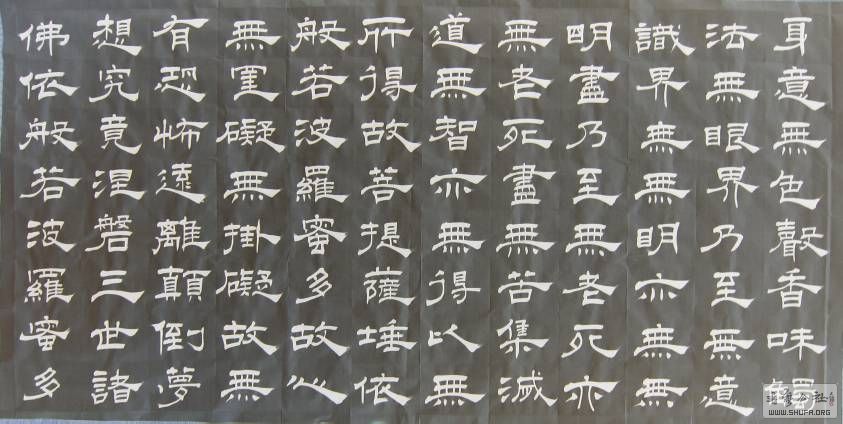 身意無色聲香味觸
法無眼界乃至無意
識界無無明亦無無
明盡乃至無老死亦
無老死盡無苦集滅
道無智亦無得以無
所得故菩提薩埵依
般若波羅蜜多故心
無罣礙無掛礙故無
有恐怖遠離顛倒夢
想究竟涅磐三世諸
佛依般若波羅蜜多
WWW.SHUFA.ORG